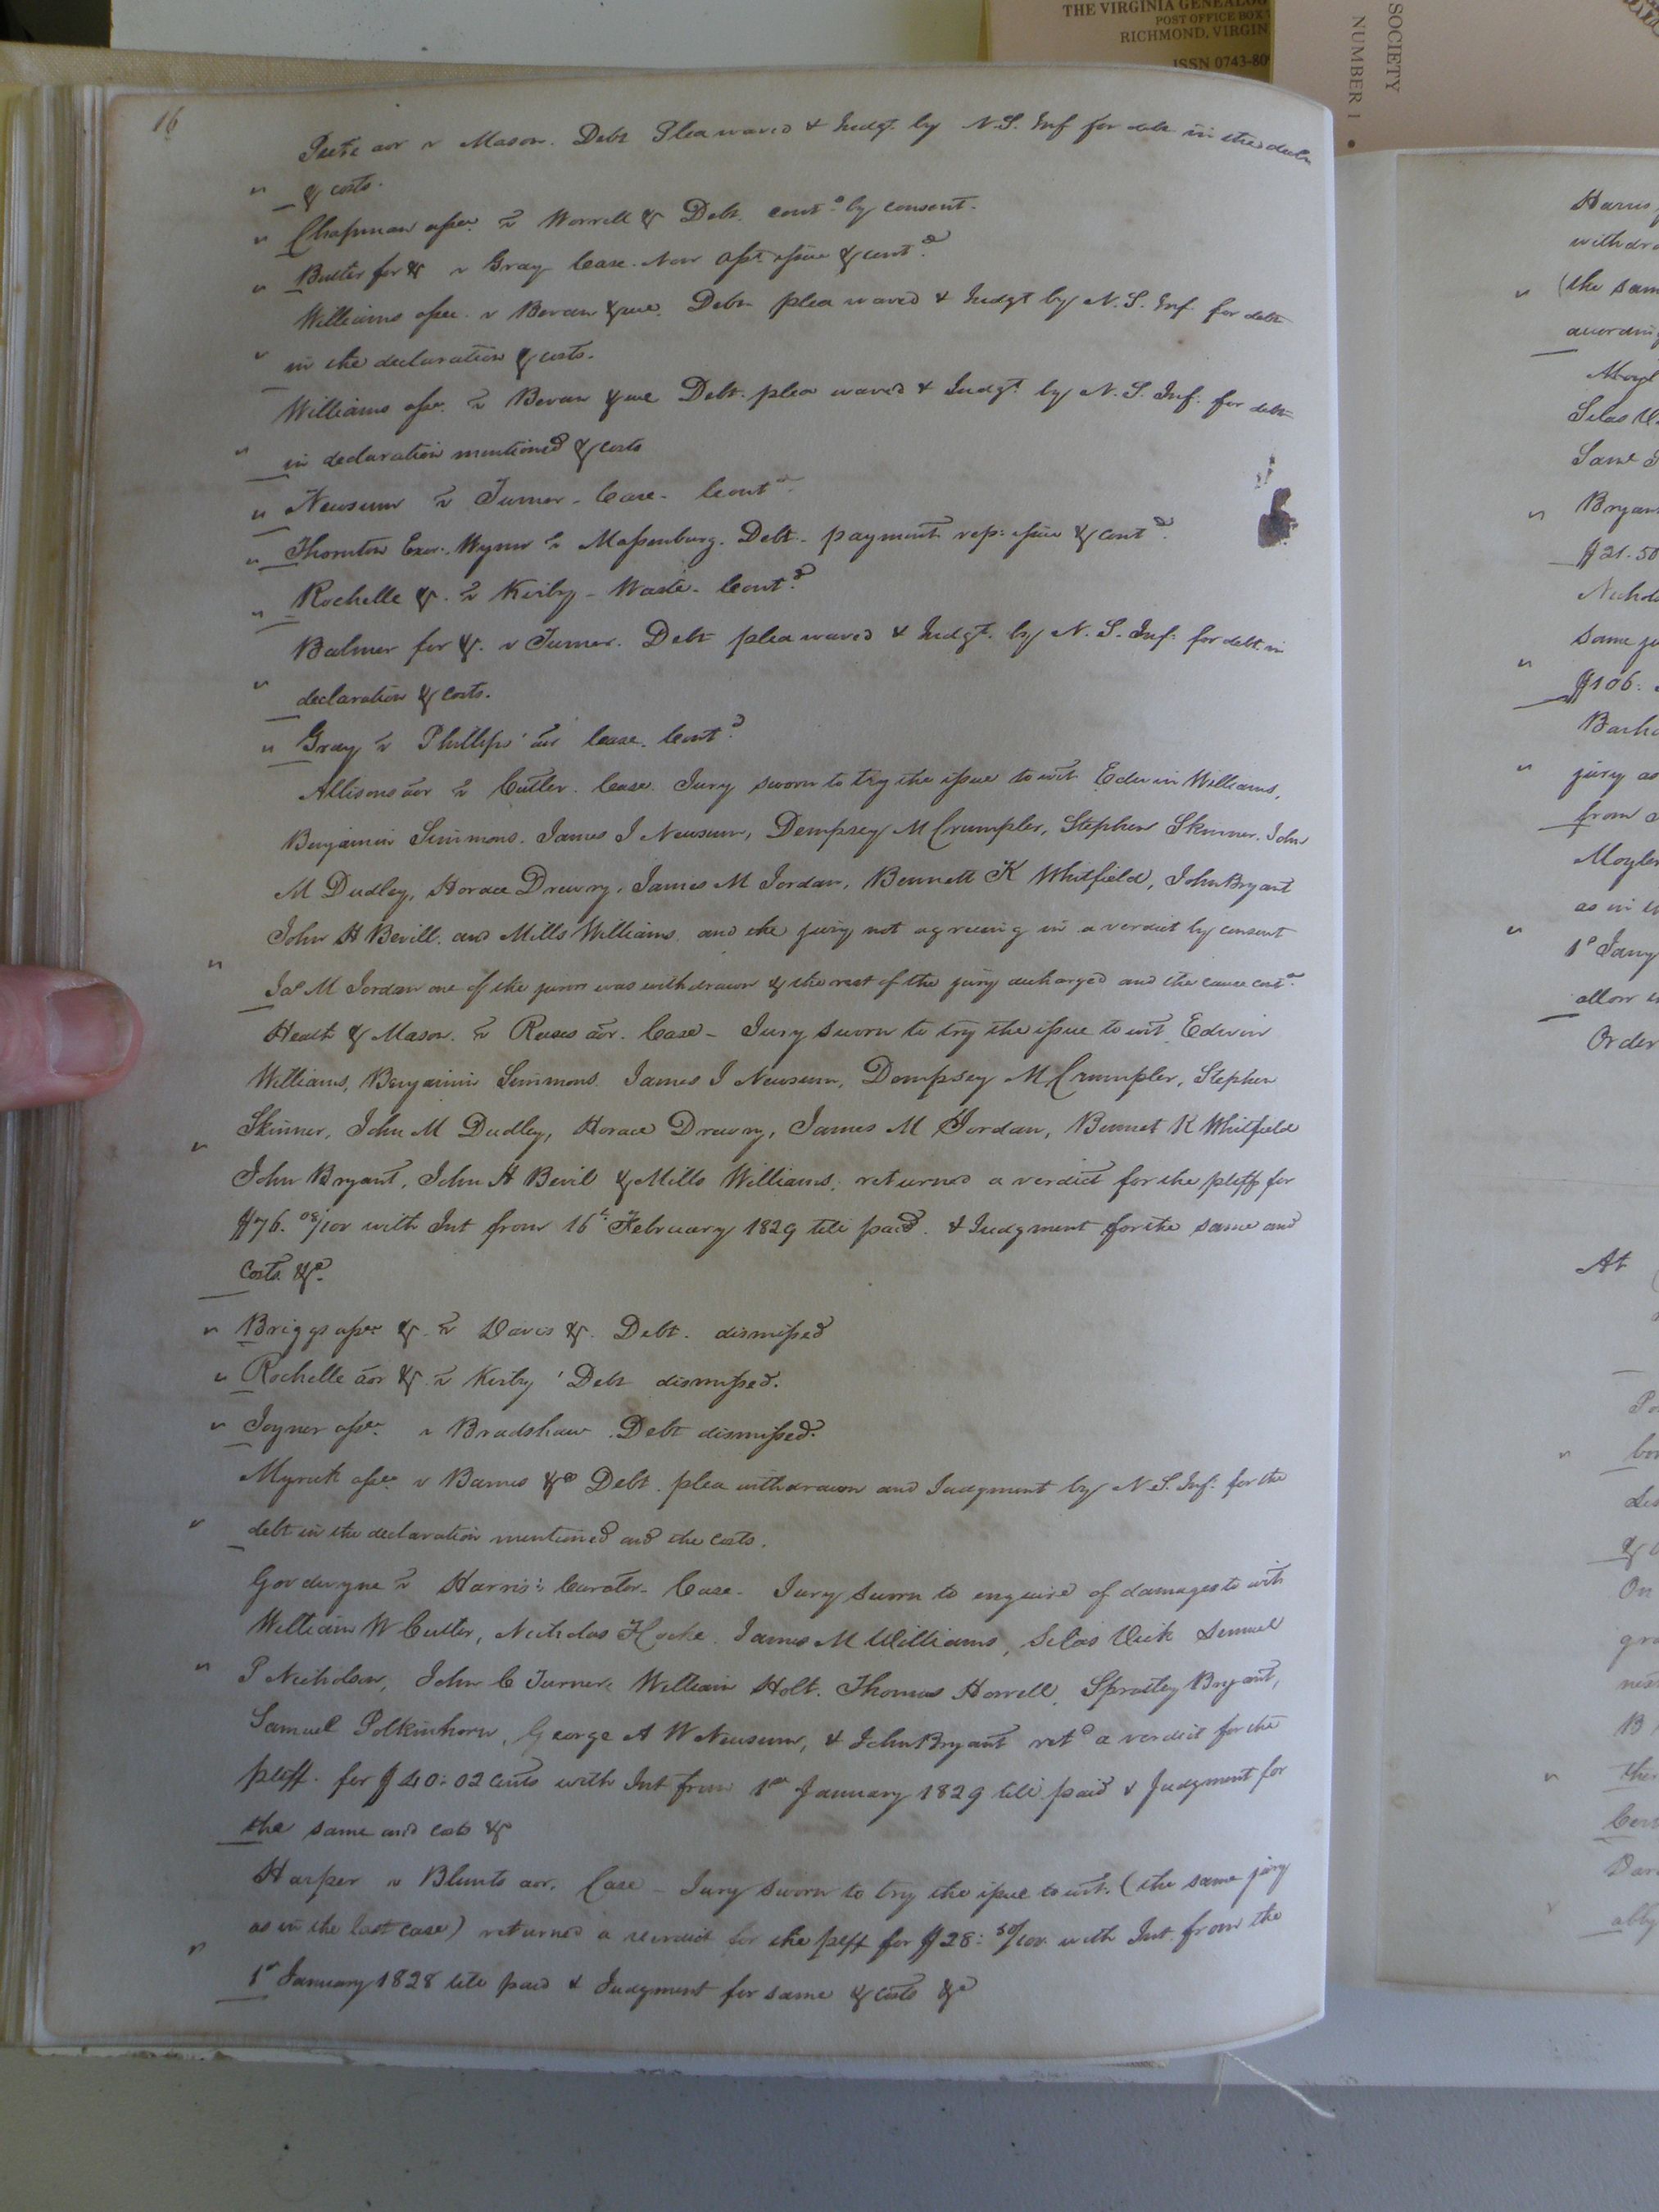 THE VIRGINIA GENEALOG
POST OFFICE BOX
RICHMOND, VIRGIN
ISSN 0743-80
SOCIETY
NUMBER 1
16
Peete aor v Mason. Debt Plea waved & Judgt. by N.S. Inf for debt in the decln
& costs.
Chapman assee v Worrell & Debt. contd by consent.
Butler for & v Gray Case. Non Asst. issue & contd
Williams assee. v Bevan &c. Debt plea waved & Judgt by N.S. Inf. for debt
in the declaration & costs.
Williams assee. v Bevan &c Debt. plea waved & Judgt by N.S. Inf. for debt
in declaration mentioned & costs
Newsum v Turner - Case - Contd
Thornton Exor. Wynne v Massenburg. Debt - payment rep: issue & contd.
Rochelle &. v Kirby - Waste - Contd
Balmer for &. v Turner. Debt plea waved & Judgt. by N.S. Inf: for debt in
declaration & costs.
Gray v Phillips' aor Case. Contd
Allisons aor v Cutler. Case. Jury sworn to try the issue to wit Edwin Williams,
Benjamin Simmons. James J Newsum, Dempsey M Crumpler, Stephen Skinner. John
M Dudley, Horace Drewry, James M Jordan, Bennett K Whitfield, John Bryant
John H Bevill. and Mills Williams. and the jury not agreeing in a verdict by consent
Jas M Jordan one of the jurors was withdrawn & the rest of the jury discharged and the cause contd.
Heath & Mason. v Reeses aor. Case - Jury sworn to try the issue to wit Edwin
Williams, Benjamin Simmons. James J Newsum, Dempsey M Crumpler, Stephen
Skinner, John M Dudley, Horace Drewry, James M Jordan, Bennet K Whitfield
John Bryant, John H Bevil & Mills Williams. returned a verdict for the pltff for
$76. 08/100 with Int from 16th February 1829 till paid. & Judgment for the same and
Costs &c.
Briggs assee & v Davis &. Debt. dismissed
Rochelle aor & v Kirby Debt dismissed.
Joyner assee. v Bradshaw. Debt dismissed.
Myrick assee v Barnes &c Debt. plea withdrawn and Judgment by N.S. Inf: for the
debt in the declaration mentioned and the costs.
Goodwyne v Harris's Curator - Case - Jury sworn to enquire of damages to wit
William W Cutler, Nicholas James M Williams, Silas Vick Lemuel
P Nicholson, John C Turner William Holt. Thomas Howell. Spratley Bryant,
Samuel Polkinhorn, George A W Newsum, & John Bryant retd a verdict for the
pltff. for $40:02 Cents with Int from 1st January 1829 till paid & Judgment for
the same and costs &
Harper v Blunts aor. Case - Jury sworn to try the issue to wit. (the same jury
as in the last case) returned a verdict for the pltff for $28: 50/100 with Int. from the
1st January 1828 till paid & Judgment for same & costs &c
Harris
withdra
(the sam
accordin
Moyl
Silas V
Same
Bryan
$21.50
Nichol
same ju
$106.
jury as
from
Moyler
as in
1st Jany
allow
Order
At
On